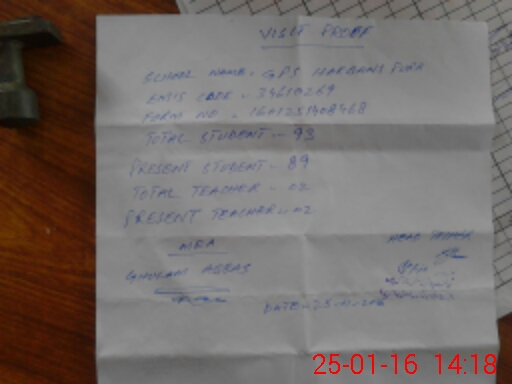 VISIT PROOF
SCHOOL NAME: GPS HARBANS PURA
EMIS CODE - 34610269
FORM NO - 16A1251408468
TOTAL STUDENT - 93
PRESENT STUDENT - 89
TOTAL TEACHER - 02
PRESENT TEACHER - 02
MEA
HEAD TEACHER
GHULAM ABBAS
DATE - 25-
25-01-16 14:18